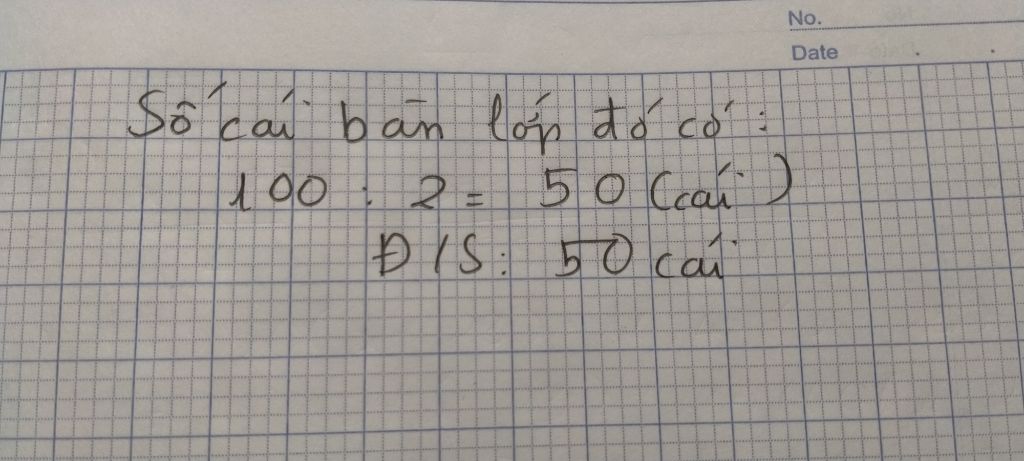 No.
Date . .
Số cái bàn lớp đó có :
100 : 2 = 50 (cái)
Đ/S: 50 cái